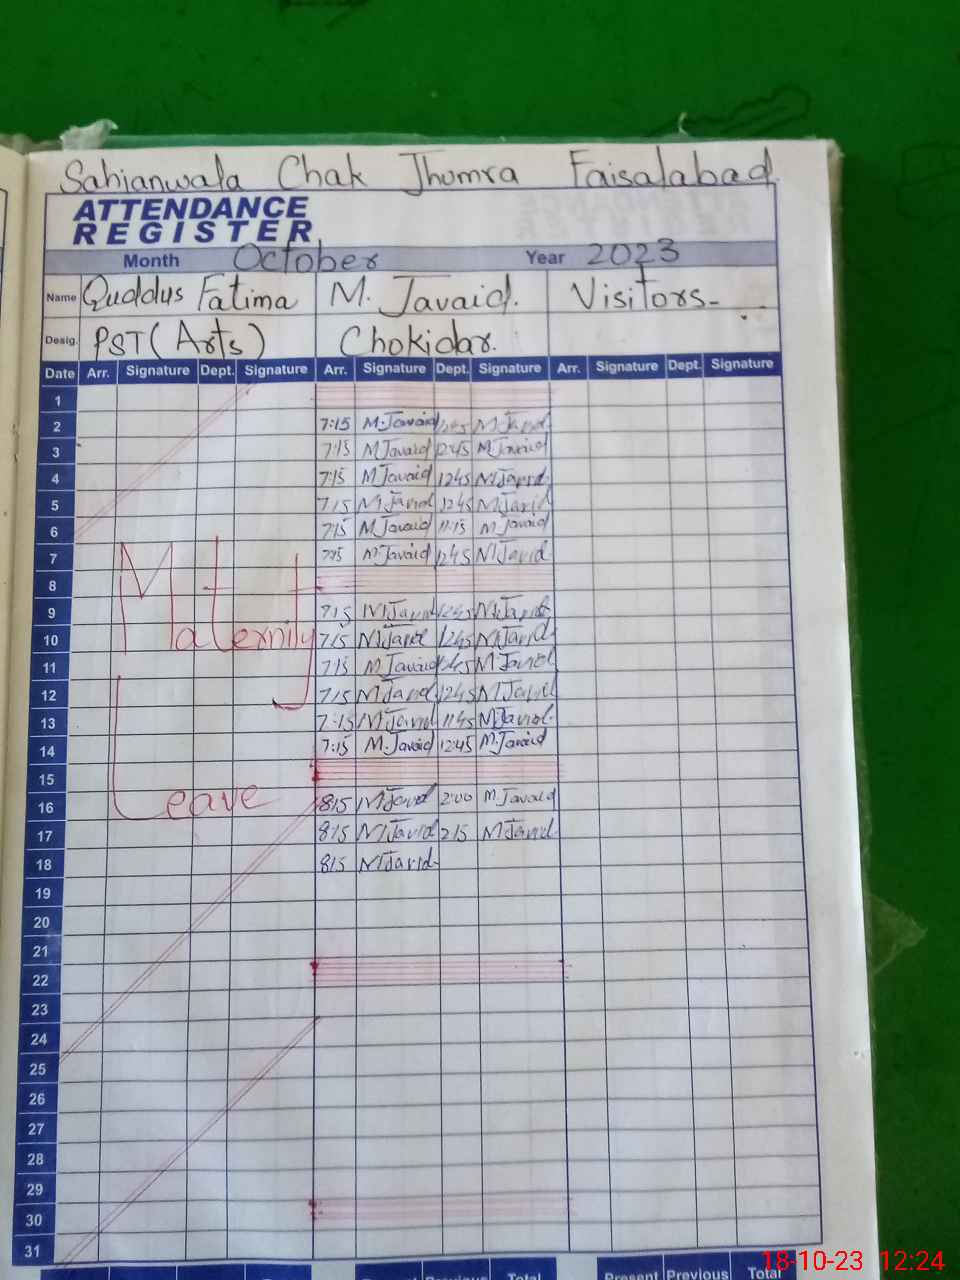 Sahianwala Chak Jhumra Faisalabad.
ATTENDANCE
REGISTER
Month October Year 2023
Name Quddus Fatima M. Javaid. Visitors-
Desig. PST (Arts) Chokidar.
Date Arr. Signature Dept. Signature Arr. Signature Dept. Signature Arr. Signature Dept. Signature
1
2 7:15 M.Javaid 12:45 M Javid
3 7:15 M Javaid 12:45 M Javaid
4 7:15 M Javaid 1245 M Javid
5 715 M Javid 1245 M Javid
6 7:15 M Javaid 11:15 M Javaid
7 7:15 M.Javaid 1245 M Javid
8
9 715 M Javid 1245 M Javid
10 715 M Javid 1245 M Javid
11 7:15 M Javaid 1245 M Javid
12 715 M Javid 1245 M Javid
13 7:15 M Javid 1145 M Javid
14 7:15 M.Javaid 12:45 M.Javaid
15
16 815 M Javid 2:00 M.Javaid
17 815 M Javid 215 M Javid
18 815 M Javid
19
20
21
22
23
24
25
26
27
28
29
30
31
Maternity
Leave
Total Present Previous Total
18-10-23 12:24